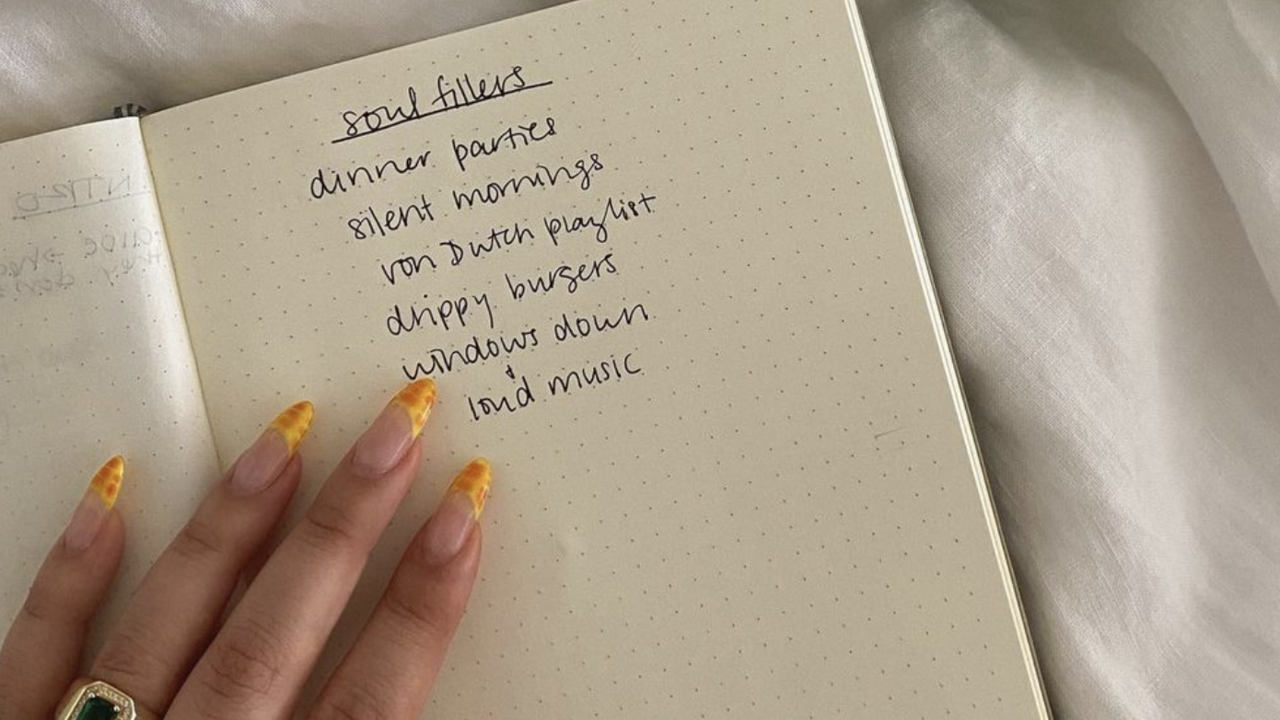 soul fillers
dinner parties
silent mornings
von Dutch playlist
drippy burgers
windows down
&
loud music